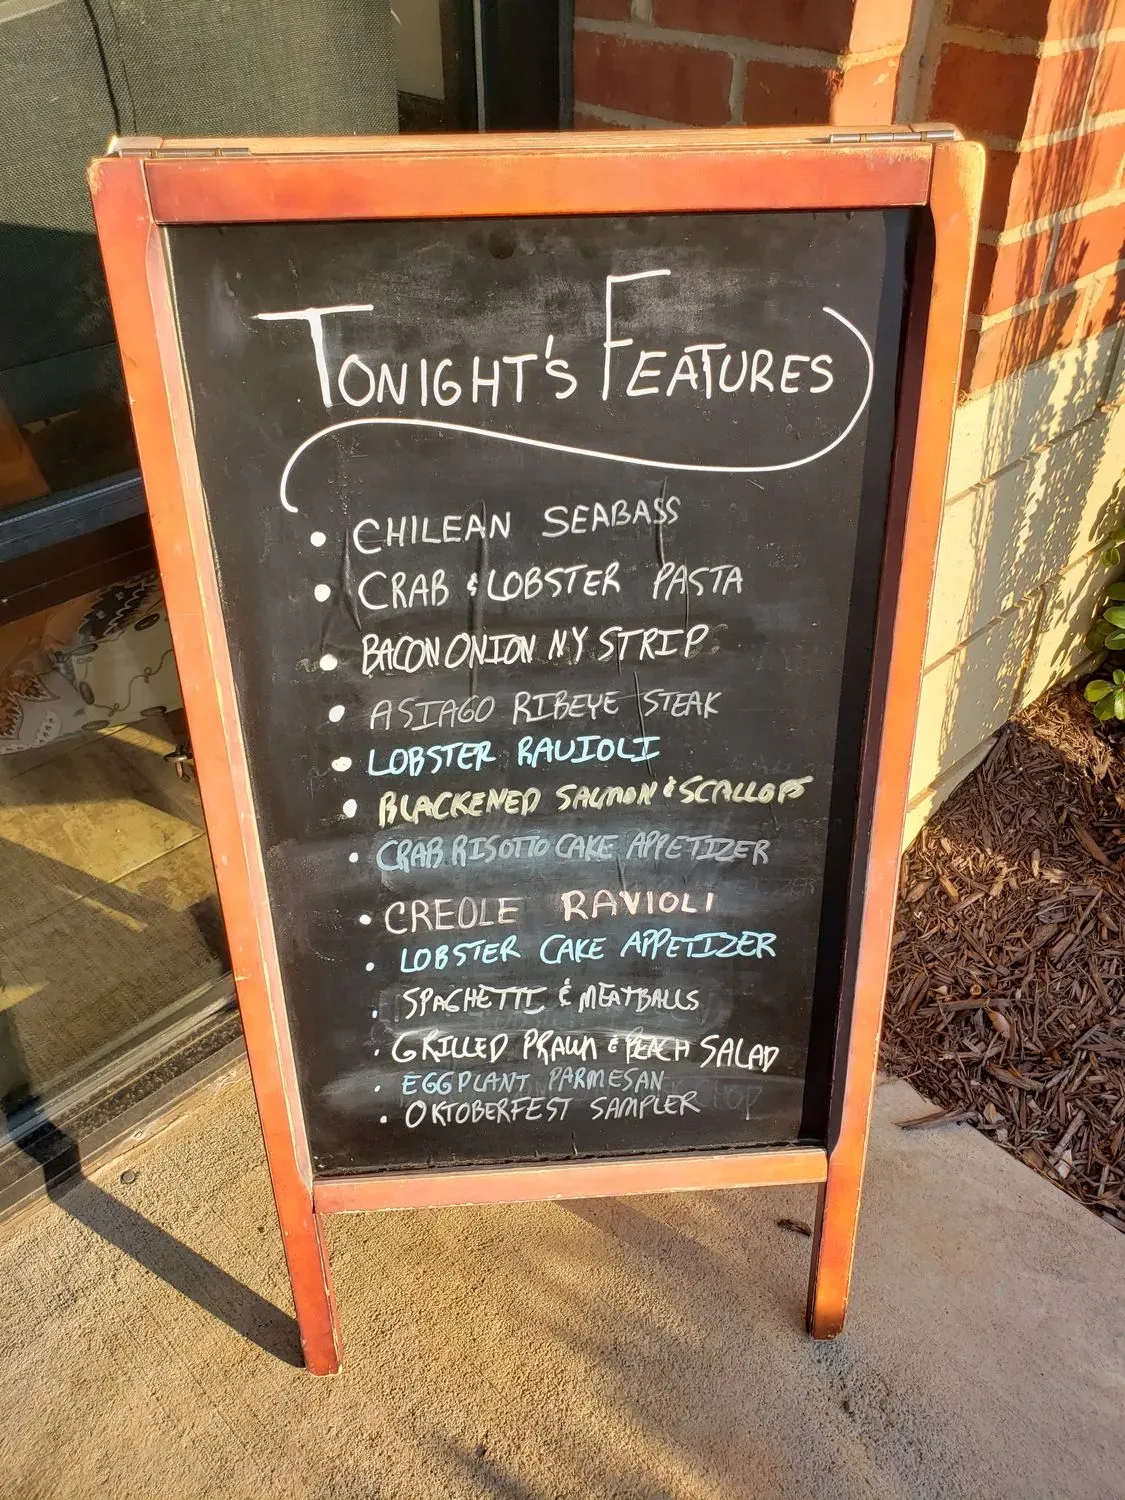 TONIGHT'S FEATURES
• CHILEAN SEABASS
• CRAB & LOBSTER PASTA
• BACON ONION NY STRIP
• ASIAGO RIBEYE STEAK
• LOBSTER RAVIOLI
• BLACKENED SALMON & SCALLOPS
• CRAB RISOTTO CAKE APPETIZER
• CREOLE RAVIOLI
• LOBSTER CAKE APPETIZER
• SPAGHETTI & MEATBALLS
• GRILLED PRAWN & PEACH SALAD
• EGGPLANT PARMESAN
• OKTOBERFEST SAMPLER